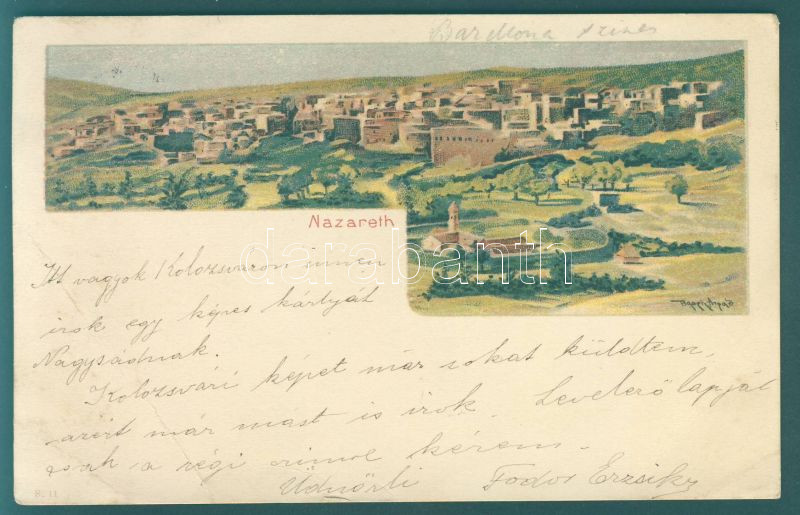 Nazareth
darabanth
Itt vagyok Kolozsváron innen
irok egy képes kártyát
Nagysádnak.
Kolozsvári képet már sokat küldtem,
azért már mást is irok. Levelező lapját
csak a régi czimre kérem.
Üdvözli Fodor Erzsike
B. 11